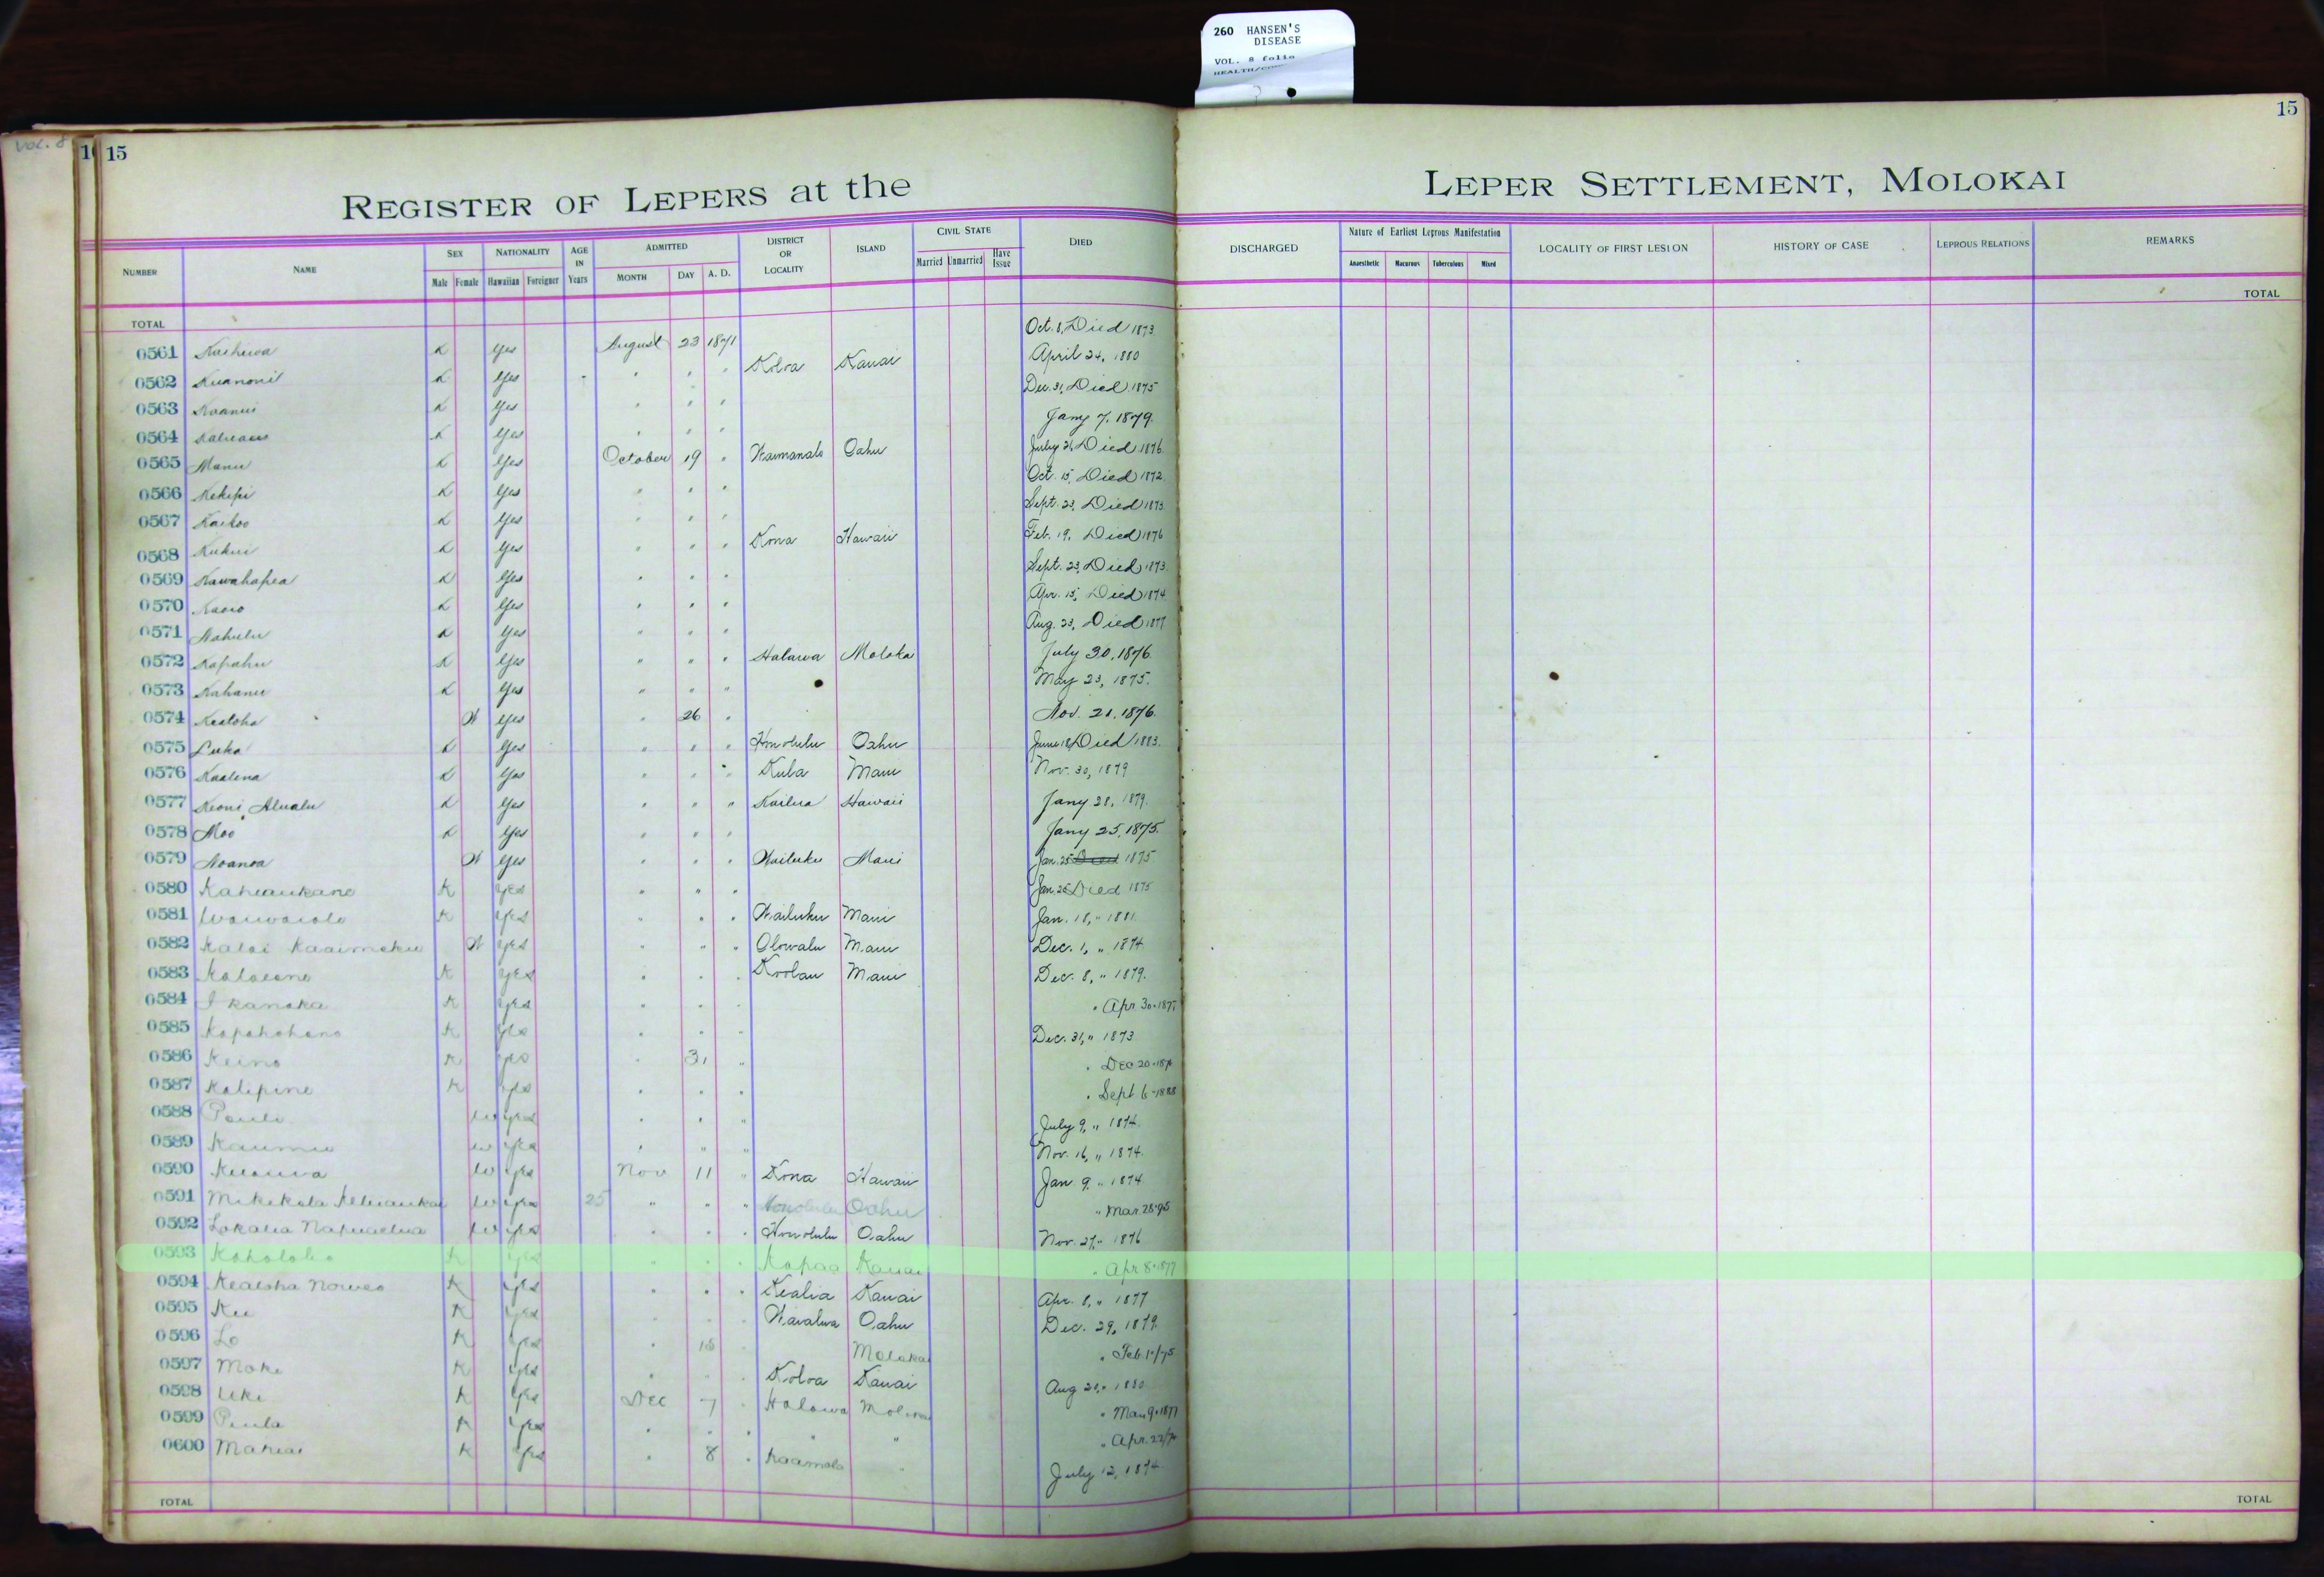 260 HANSEN'S
DISEASE
VOL. 8 folio
VOL. 8
15
15
REGISTER OF LEPERS at the LEPER SETTLEMENT, MOLOKAI
NUMBER NAME SEX Male Female NATIONALITY Hawaiian Foreigner AGE IN Years ADMITTED MONTH DAY A. D. DISTRICT OR LOCALITY ISLAND CIVIL STATE Married Unmarried Have Issue DIED
DISCHARGED Nature of Earliest Leprous Manifestation Anaesthetic Macurous Tuberculous Mixed LOCALITY OF FIRST LESION HISTORY OF CASE LEPROUS RELATIONS REMARKS
TOTAL TOTAL
0561 K Yes August 23 1871 Oct. 8, Died 1873
0562 Kuanoni K Yes " " " Koloa Kauai April 24, 1880
0563 K Yes " " " Dec. 31, Died 1875
0564 K Yes " " " Jany 7, 1879.
0565 Manu K Yes October 19 " Waimanalo Oahu July 21, Died 1876
0566 Kekipi K Yes " " " Oct. 15, Died 1872
0567 Kaikoo K Yes " " " Sept. 23, Died 1873
0568 Kukui K Yes " " " Kona Hawaii Feb. 19, Died 1876
0569 Kawahapea K Yes " " " Sept. 23, Died 1873
0570 K Yes " " " Apr. 15, Died 1874
0571 Nahulu K Yes " " " Aug. 23, Died 1877
0572 Kapahu K Yes " " " Halawa Moloka July 30, 1876
0573 Kahanu K Yes " " " May 23, 1875.
0574 Kealoha W Yes " 26 " Nov. 21, 1876.
0575 Luka K Yes " " " Honolulu Oahu June 18, Died 1883.
0576 Kaalena K Yes " " " Kula Maui Nov. 30, 1879
0577 Keoni Alualu K Yes " " " Kailua Hawaii Jany 28, 1879.
0578 Moo K Yes " " " Jany 25, 1875.
0579 Noanoa W Yes " " " Wailuku Maui Jan. 25 Died 1875
0580 Kahaukano K Yes " " " Jan. 26 Died 1875
0581 Waiwaiole K Yes " " " Wailuku Maui Jan. 18, " 1881.
0582 Kalai Kaaimoku W Yes " " " Olowalu Maui Dec. 1, " 1874
0583 K Yes " " " Koolau Maui Dec. 8, " 1879.
0584 I kanaka K Yes " " " " Apr 30 - 1877
0585 K Yes " " " Dec. 31, " 1873
0586 Keino K Yes " 31 " " Dec 20 -
0587 Kalipine K Yes " " " " Sept 6 - 1888
0588 Pauli W Yes " " " July 9, " 1874.
0589 Kaumu W Yes " " " Nov. 16, " 1874.
0590 W Yes Nov 11 " Kona Hawaii Jan 9, " 1874
0591 W Yes 25 " " " Honolulu Oahu " Mar. 28-95
0592 W Yes " " " Honolulu Oahu Nov. 27, " 1876
0593 Koholoho K Yes " " " Kapaa Kauai " Apr 8 - 1877
0594 Kealoha K Yes " " " Kealia Kauai Apr. 8, " 1877
0595 Ku K Yes " " " Waialua Oahu Dec. 29, 1879.
0596 Lo K Yes " 18 " Molokai " Feb. 1"/75
0597 Moke K Yes " " " Koloa Kauai Aug 21, " 1880
0598 Uki K Yes Dec 7 " Halawa Molokai " Mar 9 - 1877
0599 Piula K Yes " " " " " " Apr. 22/
0600 Mahiai K Yes " 8 " Kaamola " July 12, 1874.
TOTAL TOTAL